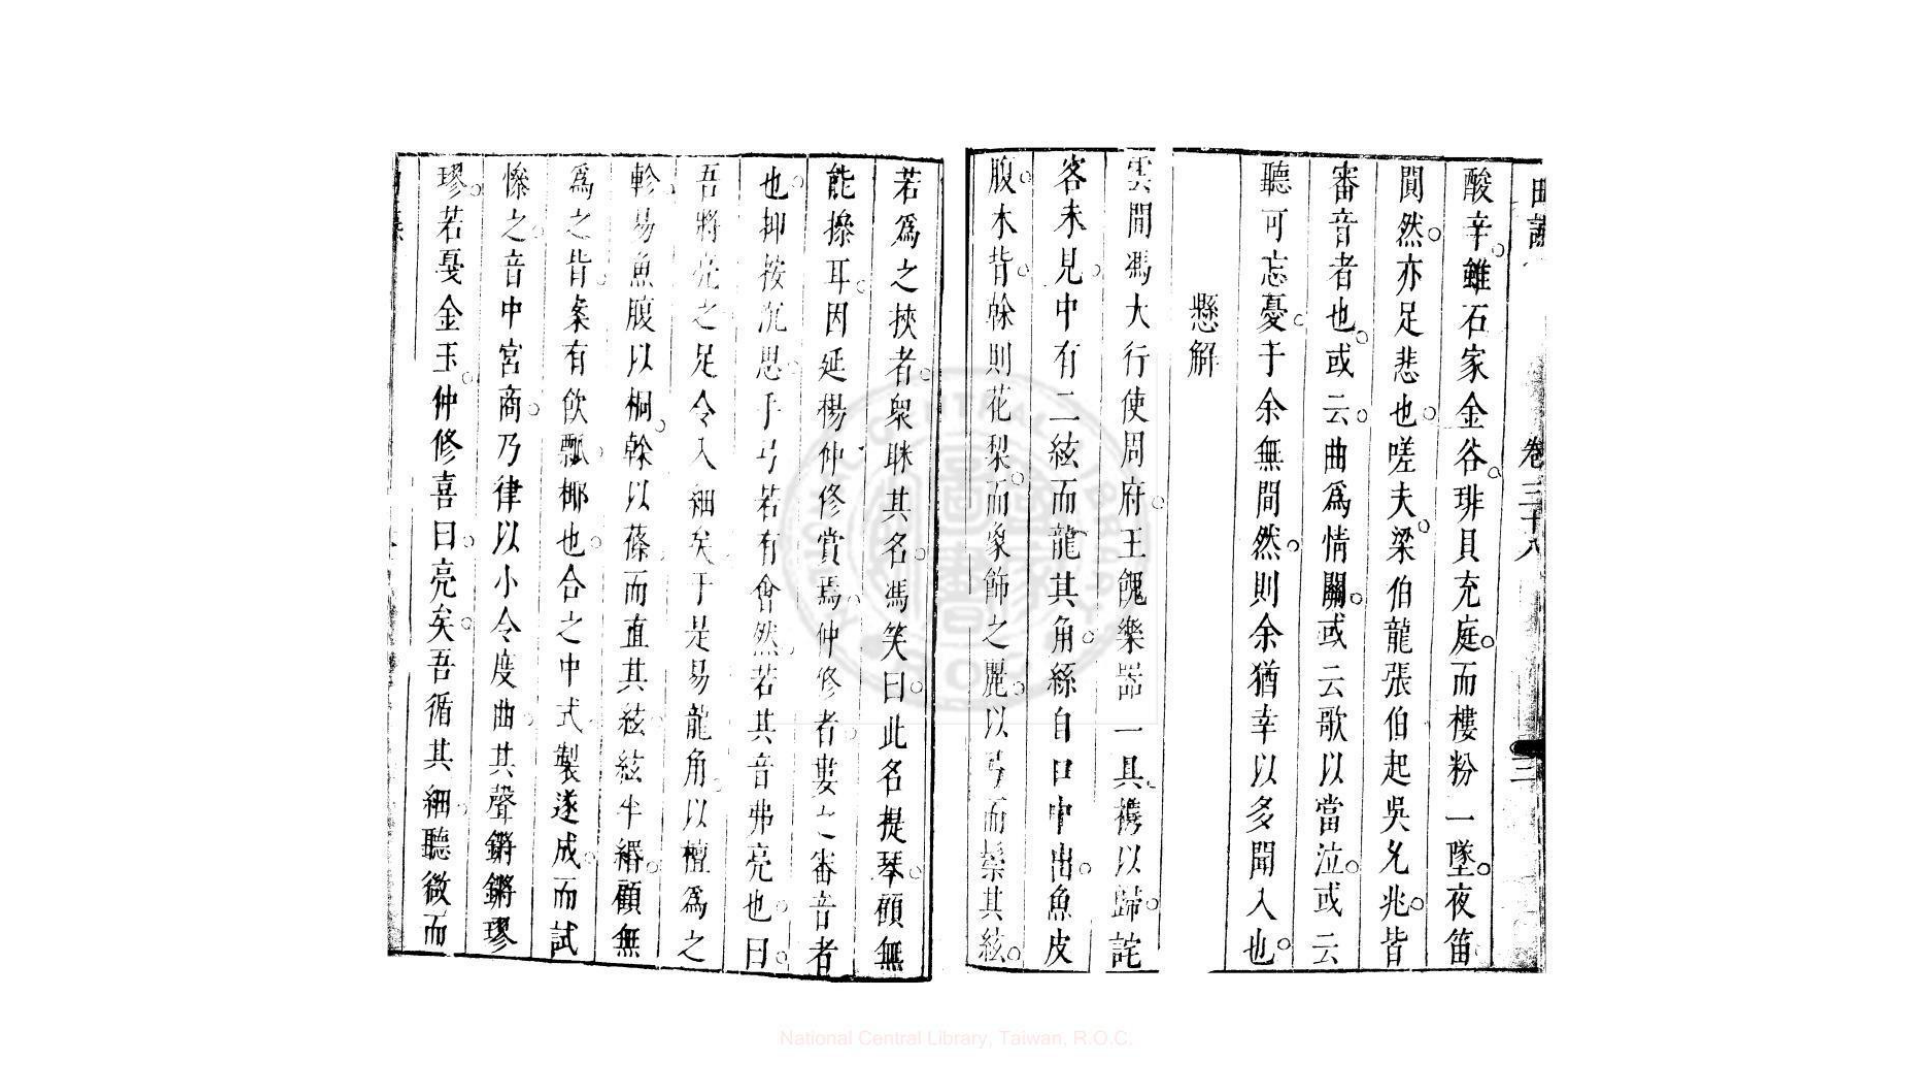 酸辛。雖石家金谷。琲貝充庭。而樓粉一墜。夜笛
閴然。亦足悲也。嗟夫。梁伯龍張伯起吳允兆。皆
審音者也。或云。曲爲情關。或云歌以當泣。或云
聽可忘憂。于余無間然。則余猶幸以多聞入也。
懸解
雲間馮大行使周府。王餽樂器一具。攜以歸。詫
客未見。中有二絃而龍其角。絲自口中出。魚皮
腹。木背。榦則花梨。而象飾之麗。以弓而髹其絃。
若爲之挾者。衆眯其名。馮笑曰。此名提琴。顧無
能操耳。因延楊仲修賞焉。仲修者。婁之審音者
也。抑按沉思。手弓若有會然。若其音弗亮也。曰。
吾將亮之足令入細矣。于是易龍角。以檀爲之
軫。易魚腹以桐。榦以篠而直其絃。絃半緡。顧無
爲之背。粲有飲瓢。椰也。合之中式。製遂成。而試
慘之音中宮商。乃律以小令度曲。其聲鏘鏘璆
璆。若戛金玉。仲修喜曰。亮矣。吾循其細。聽微而
卷三十八
三
National Central Library, Taiwan, R.O.C.